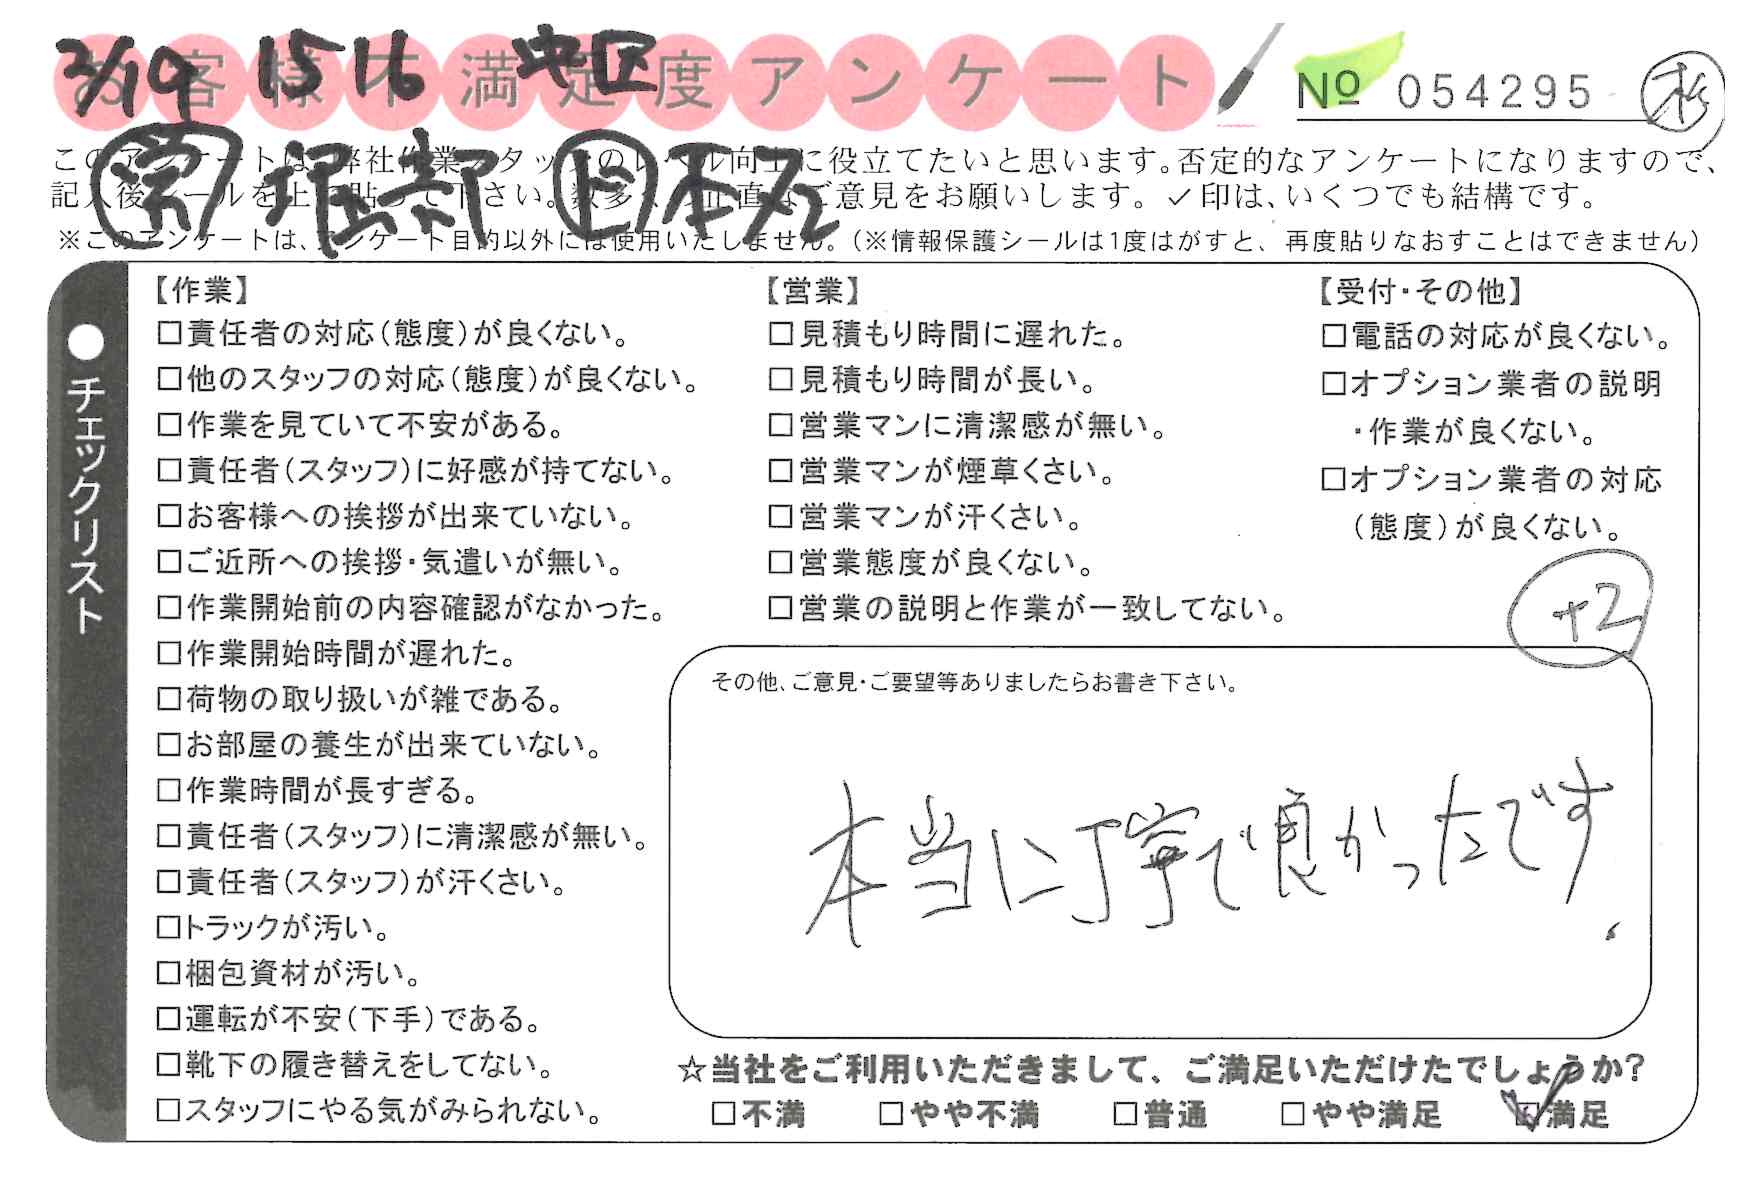 2/19 15 16
お客様不満足度アンケート
№ 054295
このアンケートは、弊社作業スタッフのレベル向上に役立てたいと思います。否定的なアンケートになりますので、
記入後シールを上に貼って下さい。数多くの正直なご意見をお願いします。✓印は、いくつでも結構です。
※このアンケートは、アンケート目的以外には使用いたしません。(※情報保護シールは1度はがすと、再度貼りなおすことはできません)
●チェックリスト
【作業】
□責任者の対応(態度)が良くない。
□他のスタッフの対応(態度)が良くない。
□作業を見ていて不安がある。
□責任者(スタッフ)に好感が持てない。
□お客様への挨拶が出来ていない。
□ご近所への挨拶・気遣いが無い。
□作業開始前の内容確認がなかった。
□作業開始時間が遅れた。
□荷物の取り扱いが雑である。
□お部屋の養生が出来ていない。
□作業時間が長すぎる。
□責任者(スタッフ)に清潔感が無い。
□責任者(スタッフ)が汗くさい。
□トラックが汚い。
□梱包資材が汚い。
□運転が不安(下手)である。
□靴下の履き替えをしてない。
□スタッフにやる気がみられない。
【営業】
□見積もり時間に遅れた。
□見積もり時間が長い。
□営業マンに清潔感が無い。
□営業マンが煙草くさい。
□営業マンが汗くさい。
□営業態度が良くない。
□営業の説明と作業が一致してない。
【受付・その他】
□電話の対応が良くない。
□オプション業者の説明
・作業が良くない。
□オプション業者の対応
(態度)が良くない。
+2
その他、ご意見・ご要望等ありましたらお書き下さい。
本当に丁寧で良かったです.
☆当社をご利用いただきまして、ご満足いただけたでしょうか?
□不満 □やや不満 □普通 □やや満足 ☑満足